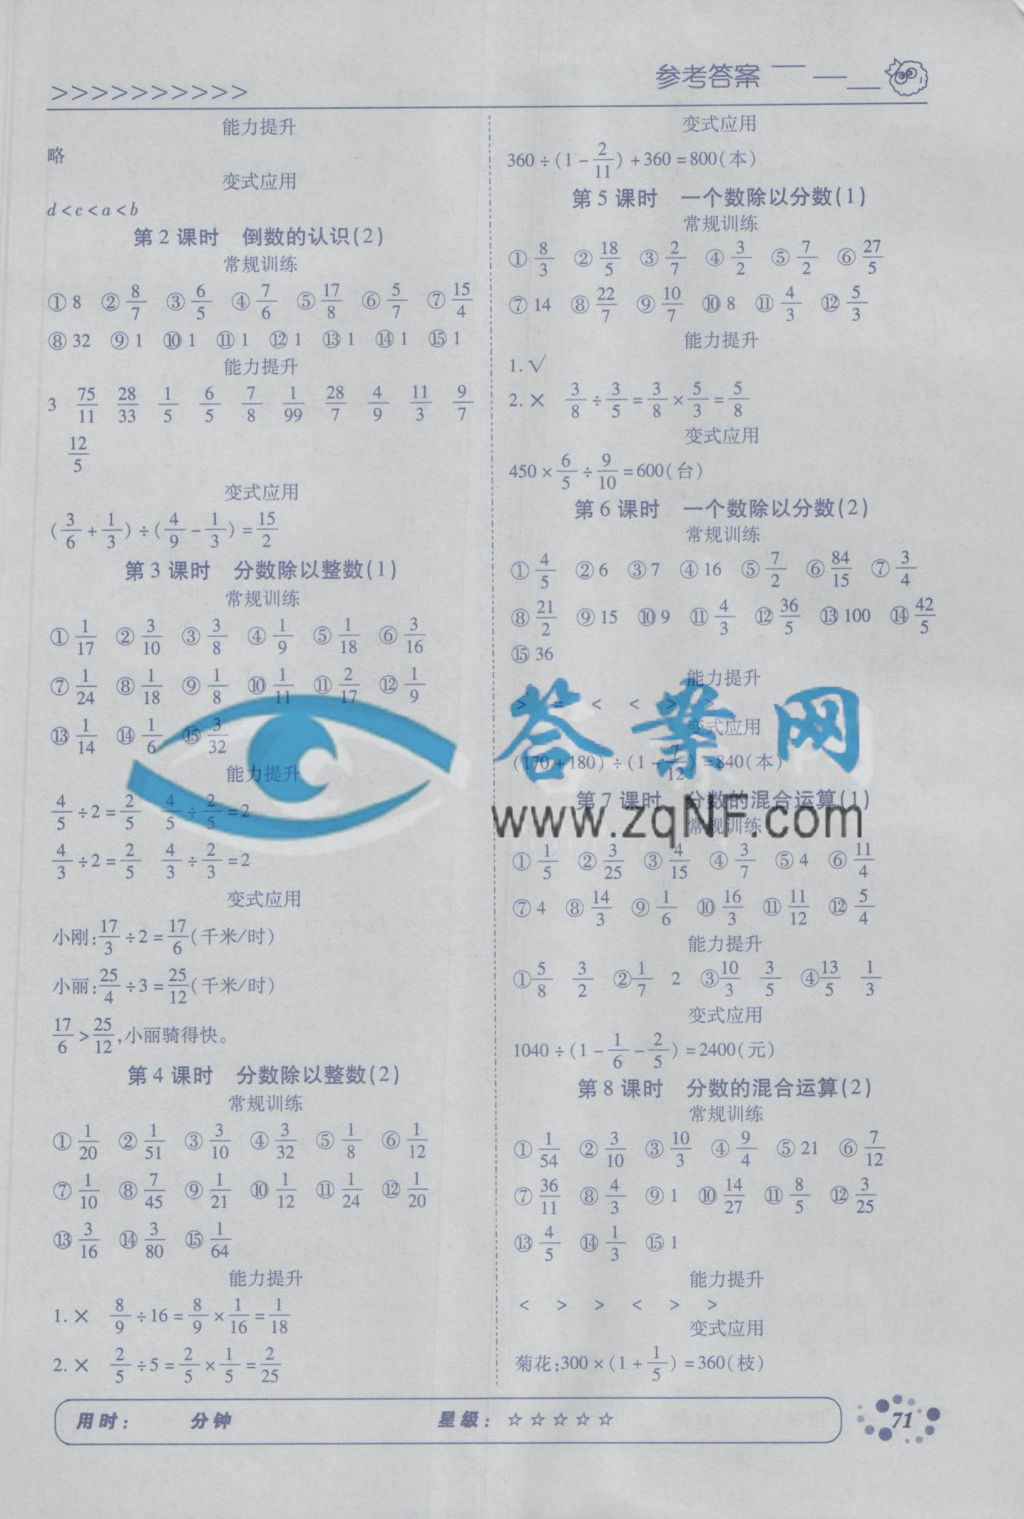 参考答案
>>>>>>>>>>
能力提升
略
变式应用
d<c<a<b
第2课时 倒数的认识(2)
常规训练
①8 ②8/7 ③6/5 ④7/6 ⑤17/8 ⑥5/7 ⑦15/4
⑧32 ⑨1 ⑩1 ⑪1 ⑫1 ⑬1 ⑭1 ⑮1
能力提升
3 75/11 28/33 1/5 6/5 7/8 1/99 28/7 4/9 11/3 9/7
12/5
变式应用
(3/6+1/3)÷(4/9-1/3)=15/2
第3课时 分数除以整数(1)
常规训练
①1/17 ②3/10 ③3/8 ④1/9 ⑤1/18 ⑥3/16
⑦1/24 ⑧1/18 ⑨1/8 ⑩1/11 ⑪2/17 ⑫1/9
⑬1/14 ⑭1/6 ⑮3/32
能力提升
4/5÷2=2/5 4/5÷2/5=2
4/3÷2=2/3 4/3÷2/3=2
变式应用
小刚:17/3÷2=17/6(千米/时)
小丽:25/4÷3=25/12(千米/时)
17/6>25/12,小丽骑得快。
第4课时 分数除以整数(2)
常规训练
①1/20 ②1/51 ③3/10 ④3/32 ⑤1/8 ⑥1/12
⑦1/10 ⑧7/45 ⑨1/21 ⑩1/12 ⑪1/24 ⑫1/20
⑬3/16 ⑭3/80 ⑮1/64
能力提升
1.× 8/9÷16=8/9×1/16=1/18
2.× 2/5÷5=2/5×1/5=2/25
变式应用
360÷(1-2/11)+360=800(本)
第5课时 一个数除以分数(1)
常规训练
①8/3 ②18/5 ③2/7 ④3/2 ⑤7/2 ⑥27/5
⑦14 ⑧22/7 ⑨10/7 ⑩8 ⑪4/3 ⑫5/3
能力提升
1.√
2.× 3/8÷3/5=3/8×5/3=5/8
变式应用
450×6/5÷9/10=600(台)
第6课时 一个数除以分数(2)
常规训练
①4/5 ②6 ③7 ④16 ⑤7/2 ⑥84/15 ⑦3/4
⑧21/2 ⑨15 ⑩9 ⑪4/3 ⑫36/5 ⑬100 ⑭42/5
⑮36
能力提升
> = < < > >
变式应用
(170+180)÷(1-7/12)=840(本)
第7课时 分数的混合运算(1)
常规训练
①1/5 ②3/25 ③4/15 ④3/7 ⑤4 ⑥11/4
⑦4 ⑧14/3 ⑨1/6 ⑩16/3 ⑪11/12 ⑫5/4
能力提升
①5/8 3/2 ②1/7 2 ③10/3 3/5 ④13/5 1/3
变式应用
1040÷(1-1/6-2/5)=2400(元)
第8课时 分数的混合运算(2)
常规训练
①1/54 ②3/10 ③10/3 ④9/4 ⑤21 ⑥7/12
⑦36/11 ⑧4/3 ⑨1 ⑩14/27 ⑪8/5 ⑫3/25
⑬4/5 ⑭1/3 ⑮1
能力提升
< > > < > >
变式应用
菊花:300×(1+1/5)=360(枝)
答案网
www.zqNF.com
用时: 分钟 星级:☆☆☆☆☆
71